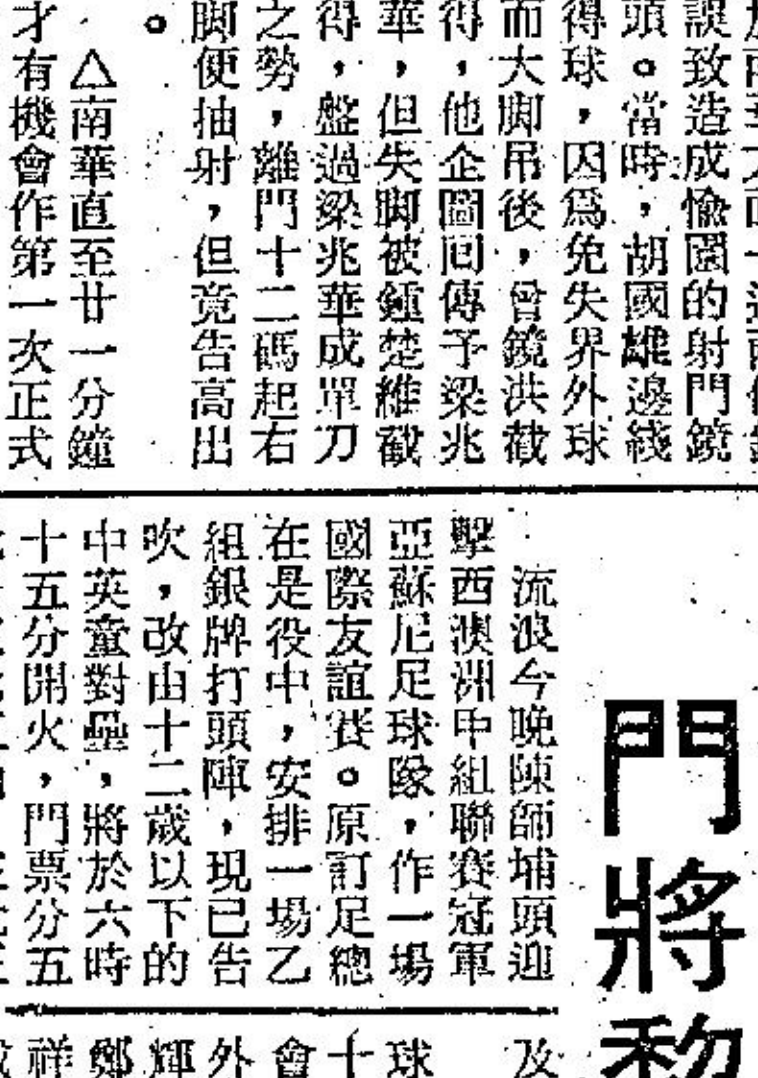 誤致造成愉園的射門鏡
頭。當時,胡國雄邊綫
得球,因爲免失界外球
而大脚吊後,曾鏡洪截
得,他企圖回傳予梁兆
華,但失脚被鍾楚維截
得,盤過梁兆華成單刀
之勢,離門十二碼起右
脚便抽射,但竟告高出
。
△南華直至廿一分鐘
才有機會作第一次正式
門將
流浪今晚陳師埔頭迎
擊西澳洲甲組聯賽冠軍
亞蘇尼足球隊,作一場
國際友誼賽。原訂足總
在是役中,安排一場乙
組銀牌打頭陣,現已告
吹,改由十二歲以下的
中英童對壘,將於六時
十五分開火,門票分五
及
球
十
會
外
輝
鄭
祥